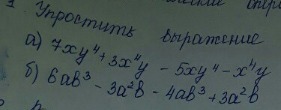 Упростить выражение
а) 7xy⁴+3x⁴y - 5xy⁴ - x⁴y
б) 6ab³ - 3a²b - 4ab³ + 3a²b